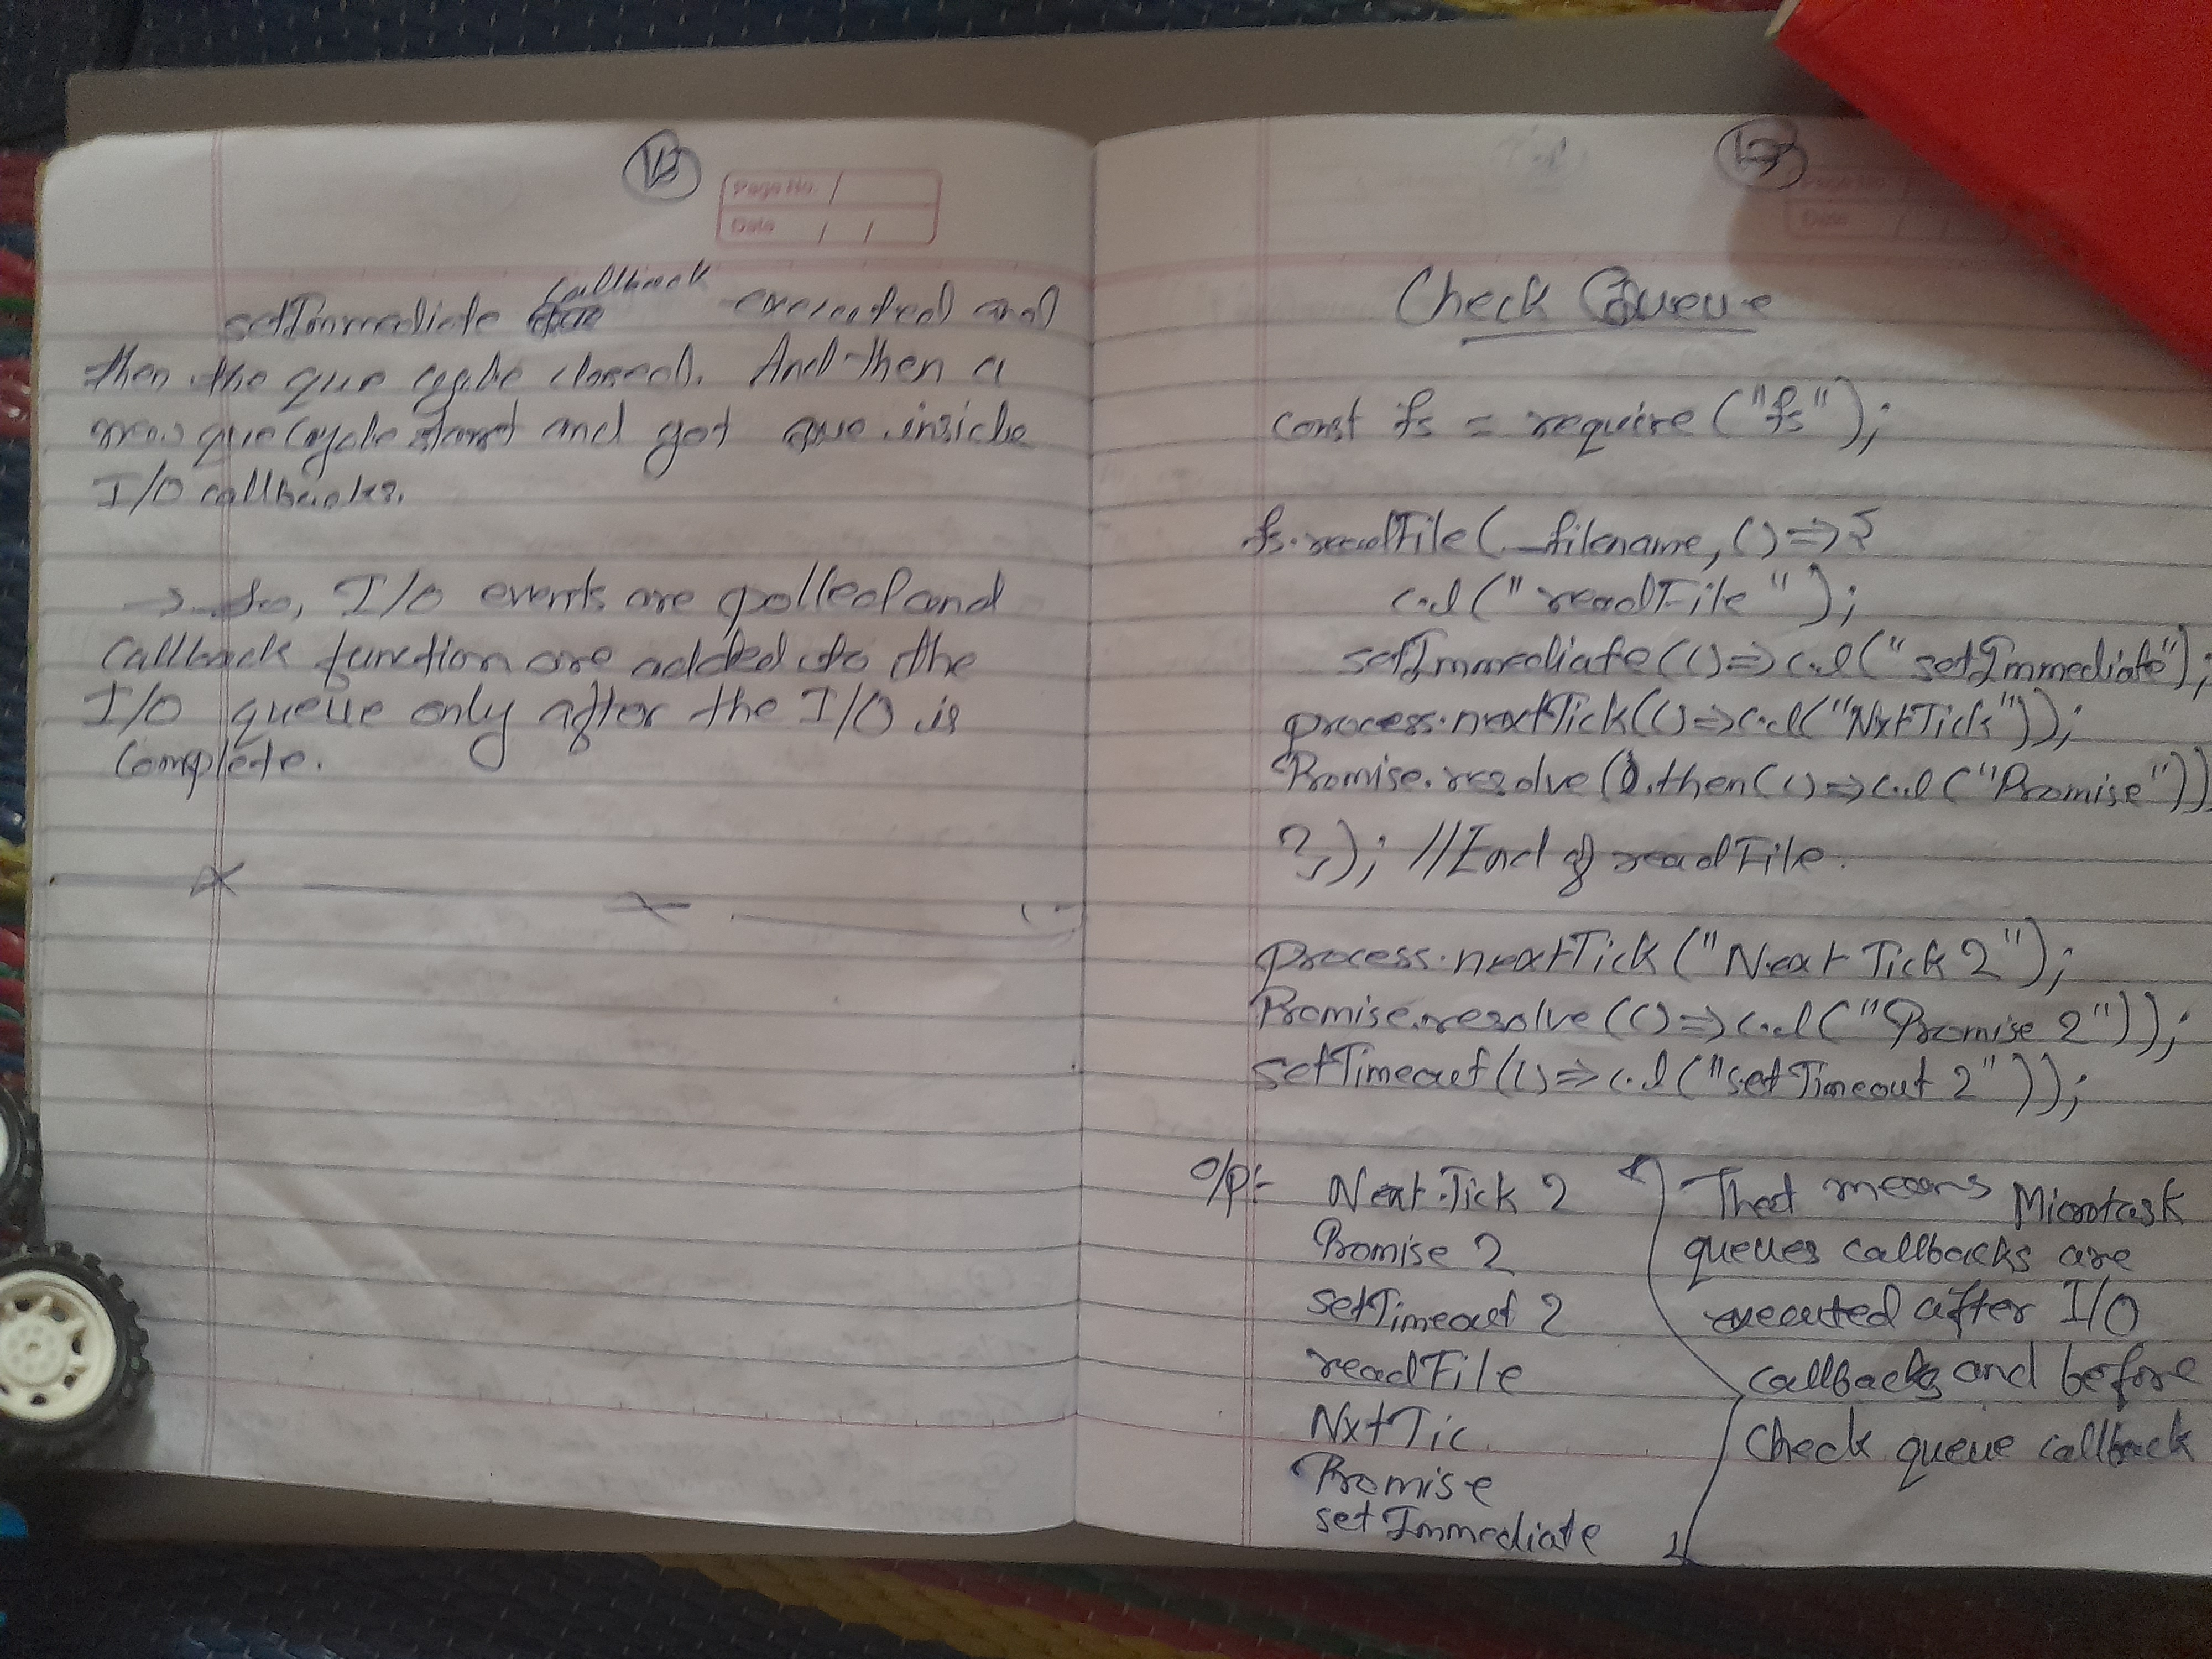 16
Page No.
Date / /
setImmediate callback executed and
then the que cycle closed. And then a
new que cycle start and got que inside
I/O callbacks.
→ So, I/O events are polled and
callback function are added to the
I/O queue only after the I/O is
complete.
17
Page No.
Date
Check Queue
const fs = require ("fs");
fs.readFile(_filename, () => {
c.l(" readFile ");
setImmediate(() => c.l(" setImmediate");
process.nextTick(() => c.l("NxtTick"));
Promise.resolve().then(() => c.l("Promise"))
}); //End of readFile.
process.nextTick("Next Tick 2");
Promise.resolve(() => c.l("Promise 2"));
setTimeout(() => c.l("setTimeout 2"));
o/p:- Next Tick 2
Promise 2
setTimeout 2
readFile
NxtTic
Promise
setImmediate
That means Microtask
queues callbacks are
executed after I/O
callbacks and before
Check queue callback